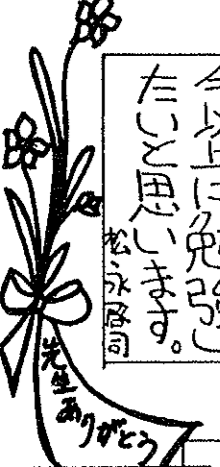 今以上に勉強し
たいと思います。
松永啓司
先生ありがとう